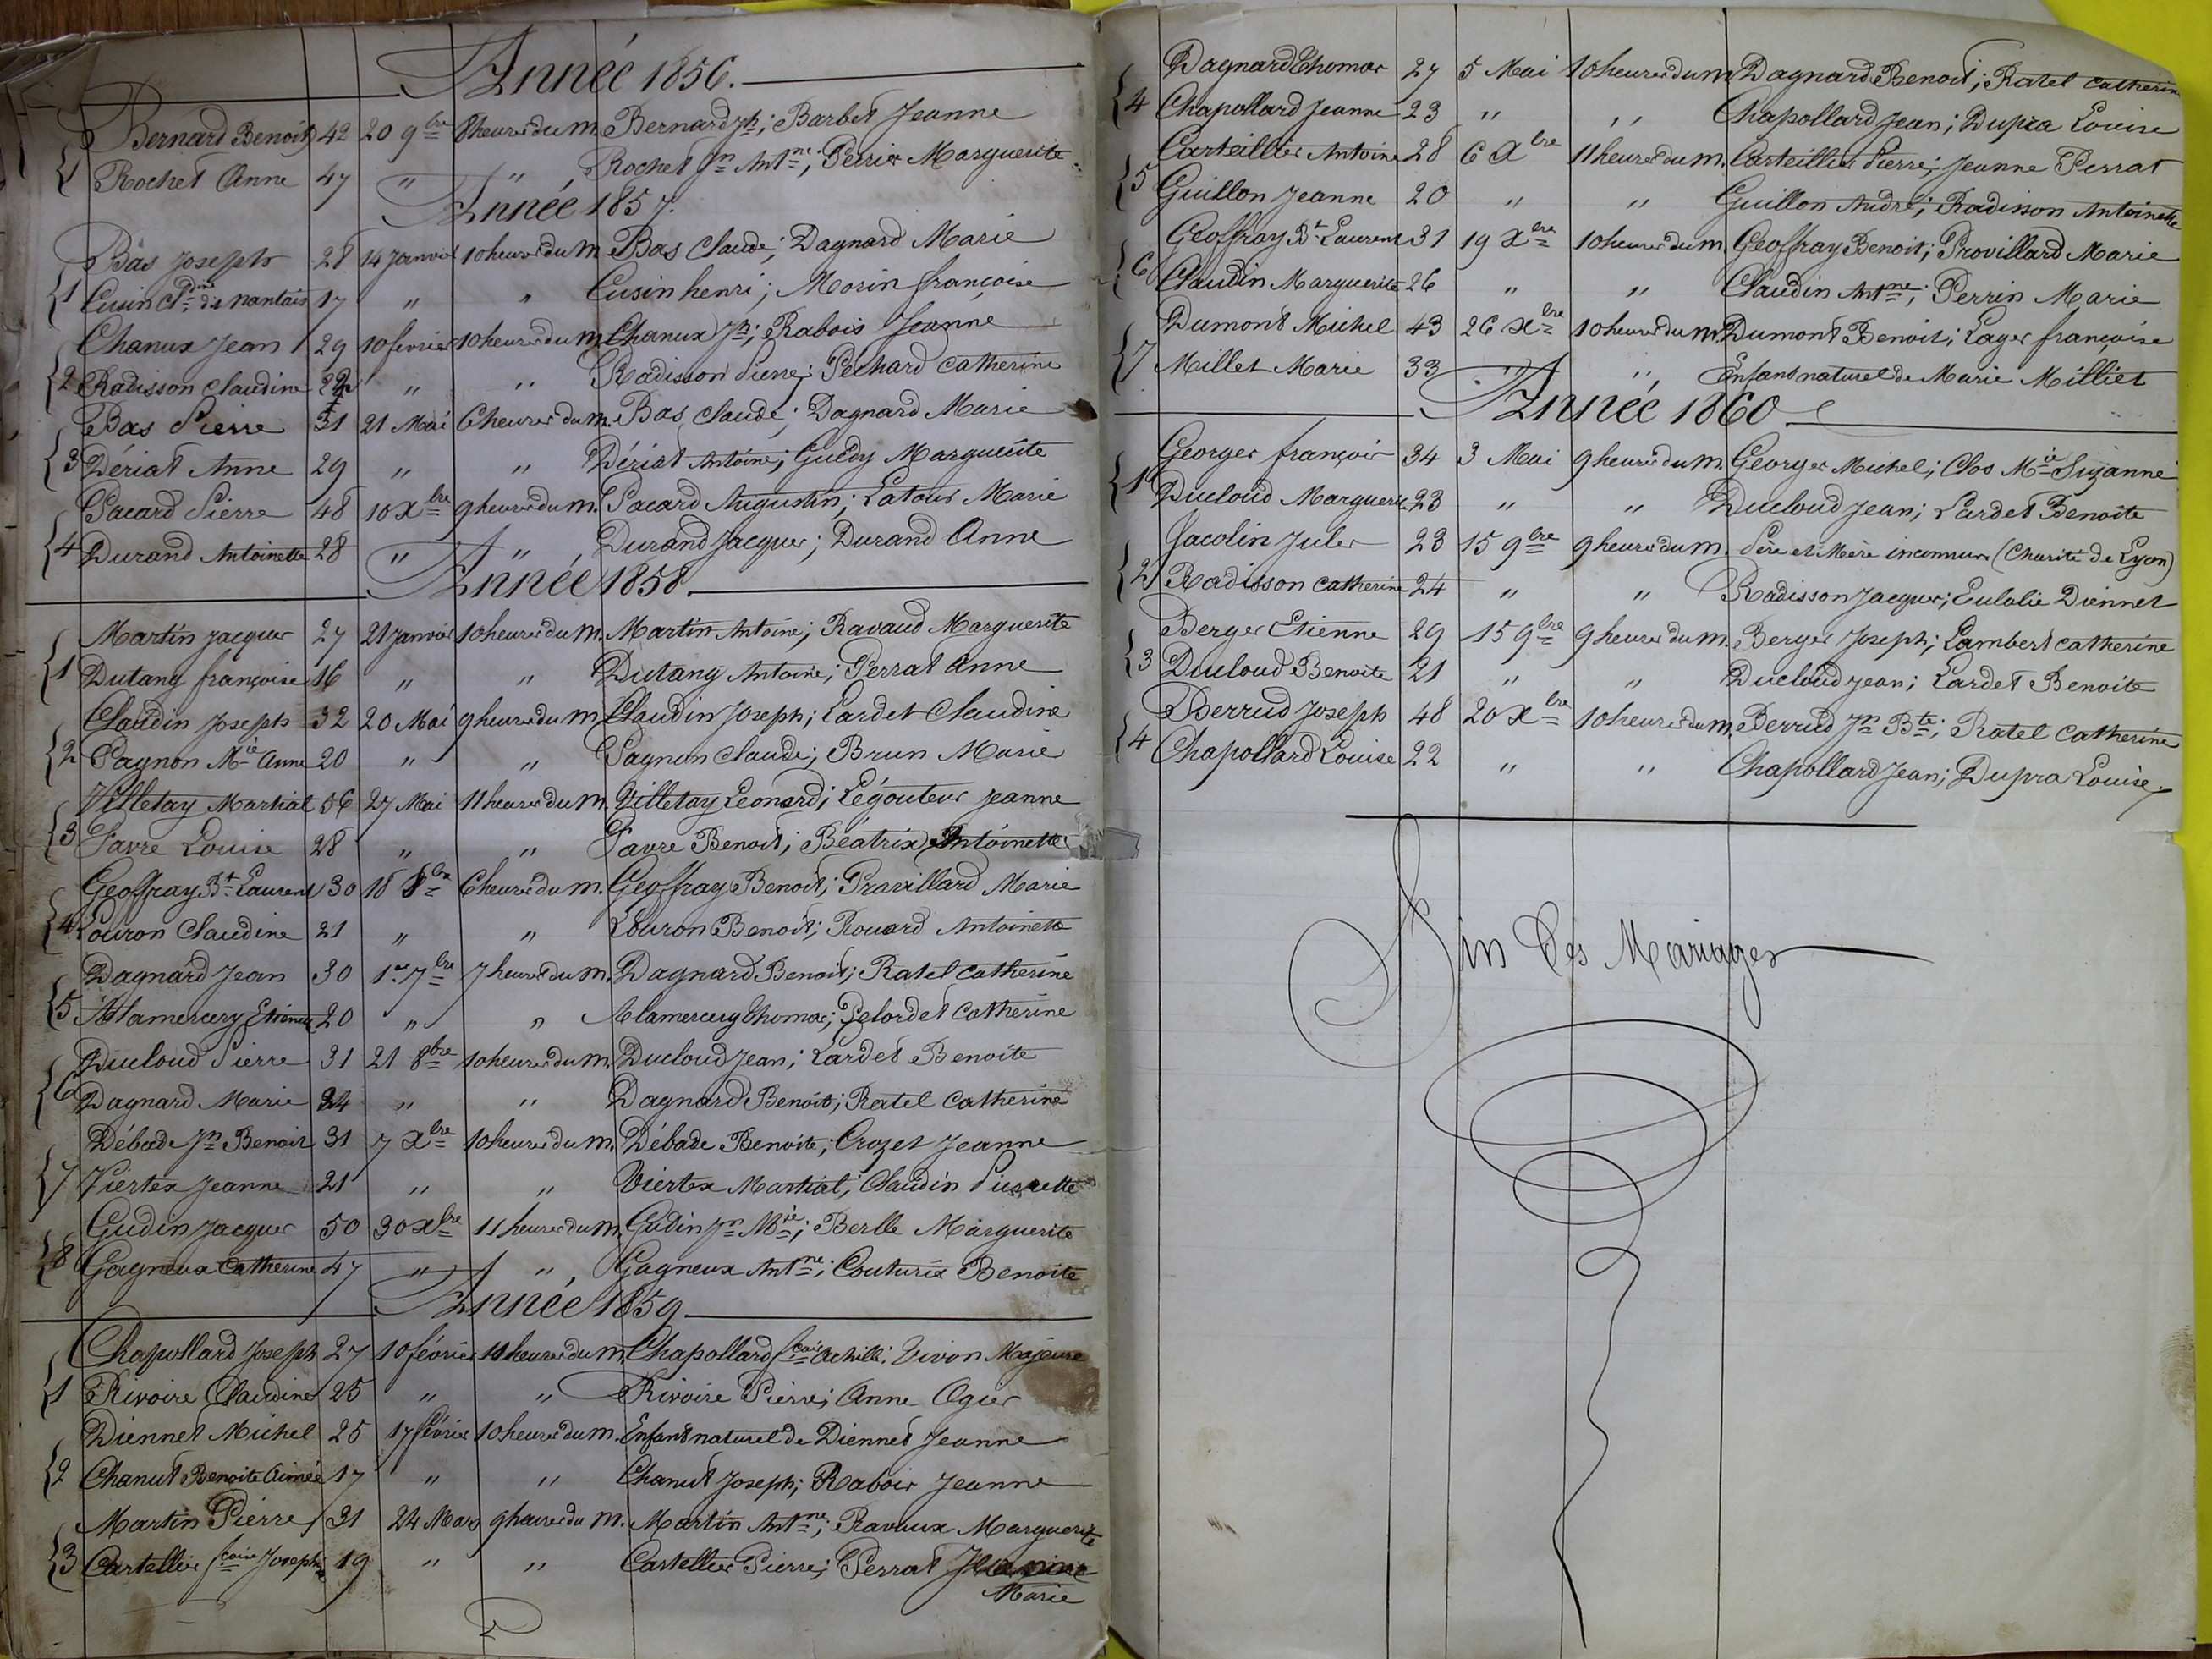 Année 1856.
Bernard Benoit 42 20 9bre 8 heures du m. Bernard Jh; Barbet Jeanne
{1 Rochet Anne 47 " " Rochet Jn Antne; Perrier Marguerite
Année 1857.
Bas Joseph 28 14 Janvier 10 heures du m. Bas Claude; Dagnard Marie
{1 Cusin Cldine dit Nantais 17 " " Cusin henri; Morin françoise
Chanux Jean 29 10 février 10 heures du m. Chanux Jh; Rabois Jeanne
{2 Radisson Claudine " " Radisson Pierre; Péchard Catherine
Bas Pierre 31 21 Mai 6 heures du m. Bas Claude; Dagnard Marie
{3 Dériat Anne 29 " " Dériat Antoine; Guédy Marguerite
Pacard Pierre 48 10 Xbre 9 heures du m. Pacard Augustin; Latour Marie
{4 Durand Antoinette 28 " " Durand Jacques; Durand Anne
Année 1858.
Martin Jacques 27 21 Janvier 10 heures du m. Martin Antoine; Ravaud Marguerite
{1 Dutang françoise 16 " " Dutang Antoine; Perrat Anne
Claudin Joseph 32 20 Mai 9 heures du m. Claudin Joseph; Lardet Claudine
{2 Pagnon Mie Anne 20 " " Pagnon Claude; Brun Marie
Villetay Martial 56 27 Mai 11 heures du m. Villetay Léonard; Légouteur Jeanne
{3 Favre Louise 28 " " Favre Benoit; Béatrix Antoinette
Geoffray Bt Laurent 30 18 8bre 6 heures du m. Geoffray Benoit; Pravillard Marie
{4 Louron Claudine 21 " " Louron Benoit; Rouard Antoinette
Dagnard Jean 30 1er 7bre 7 heures du m. Dagnard Benoit; Ratel Catherine
{5 Alamercery Etiennette 20 " " Alamercery Thomas; Pelordet Catherine
Ducloud Pierre 31 21 8bre 10 heures du m. Ducloud Jean; Lardet Benoite
{6 Dagnard Marie 24 " " Dagnard Benoit; Ratel Catherine
Débade Jn Benoit 31 7 Xbre 10 heures du m. Débade Benoite; Crozet Jeanne
{7 Viertex Jeanne 21 " " Viertex Martial; Claudin Pierrette
Gudin Jacques 50 30 Xbre 11 heures du m. Gudin Jn Mie; Berlle Marguerite
{8 Gagneux Catherine 47 " " Gagneux Antne; Couturix Benoite
Année 1859.
Chapollard Joseph 27 10 février 10 heures du m. Chapollard fcois Achille; Vivon Majeure
{1 Rivoire Claudine 25 " " Rivoire Pierre; Anne Ogier
Diennet Michel 25 17 février 10 heures du m. Enfant naturel de Diennet Jeanne
{2 Chanut Benoite Aimée 17 " " Chanut Joseph; Rabois Jeanne
Martin Pierre 31 24 Mars 9 heures du m. Martin Antne; Ravaux Marguerite
{3 Cartellier fcoise Josephe 19 " " Cartellier Pierre; Perrat
Marie
Dagnard Thomas 27 5 Mai 10 heures du m Dagnard Benoit; Ratel Catherine
{4 Chapollard Jeanne 23 " " Chapollard Jean; Dupra Louise
Carteillier Antoine 28 6 Xbre 11 heures du m. Carteillier Pierre; Jeanne Perrat
{5 Guillon Jeanne 20 " " Guillon André; Radisson Antoinette
Geoffray Bt Laurent 31 19 Xbre 10 heures du m. Geoffray Benoit; Provillard Marie
{6 Claudin Marguerite 26 " " Claudin Antne; Perrin Marie
Dumont Michel 43 26 Xbre 10 heures du m. Dumont Benoit; Lager françoise
{7 Millet Marie 33 " " Enfant naturel de Marie Milliet
Année 1860
Georges françois 34 3 Mai 9 heures du m. Georges Michel; Clos Mie Suzanne
{1 Ducloud Marguerite 23 " " Ducloud Jean; Lardet Benoite
Jacolin Jules 23 15 9bre 9 heures du m. Père et Mère inconnus (Charité de Lyon)
{2 Radisson Catherine 24 " " Radisson Jacques; Eulalie Diennet
Berger Etienne 29 15 9bre 9 heures du m. Berger Joseph; Lambert Catherine
{3 Ducloud Benoite 21 " " Ducloud Jean; Lardet Benoite
Berrud Joseph 48 20 Xbre 10 heures du m. Berrud Jn Bte; Ratel Catherine
{4 Chapollard Louise 22 " " Chapollard Jean; Dupra Louise.
Fin des Mariages